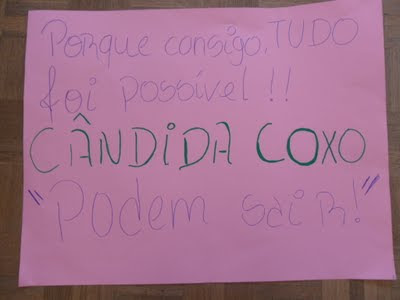 Porque consigo, TUDO
foi possível!!
CÂNDIDA COXO
"Podem sair!"